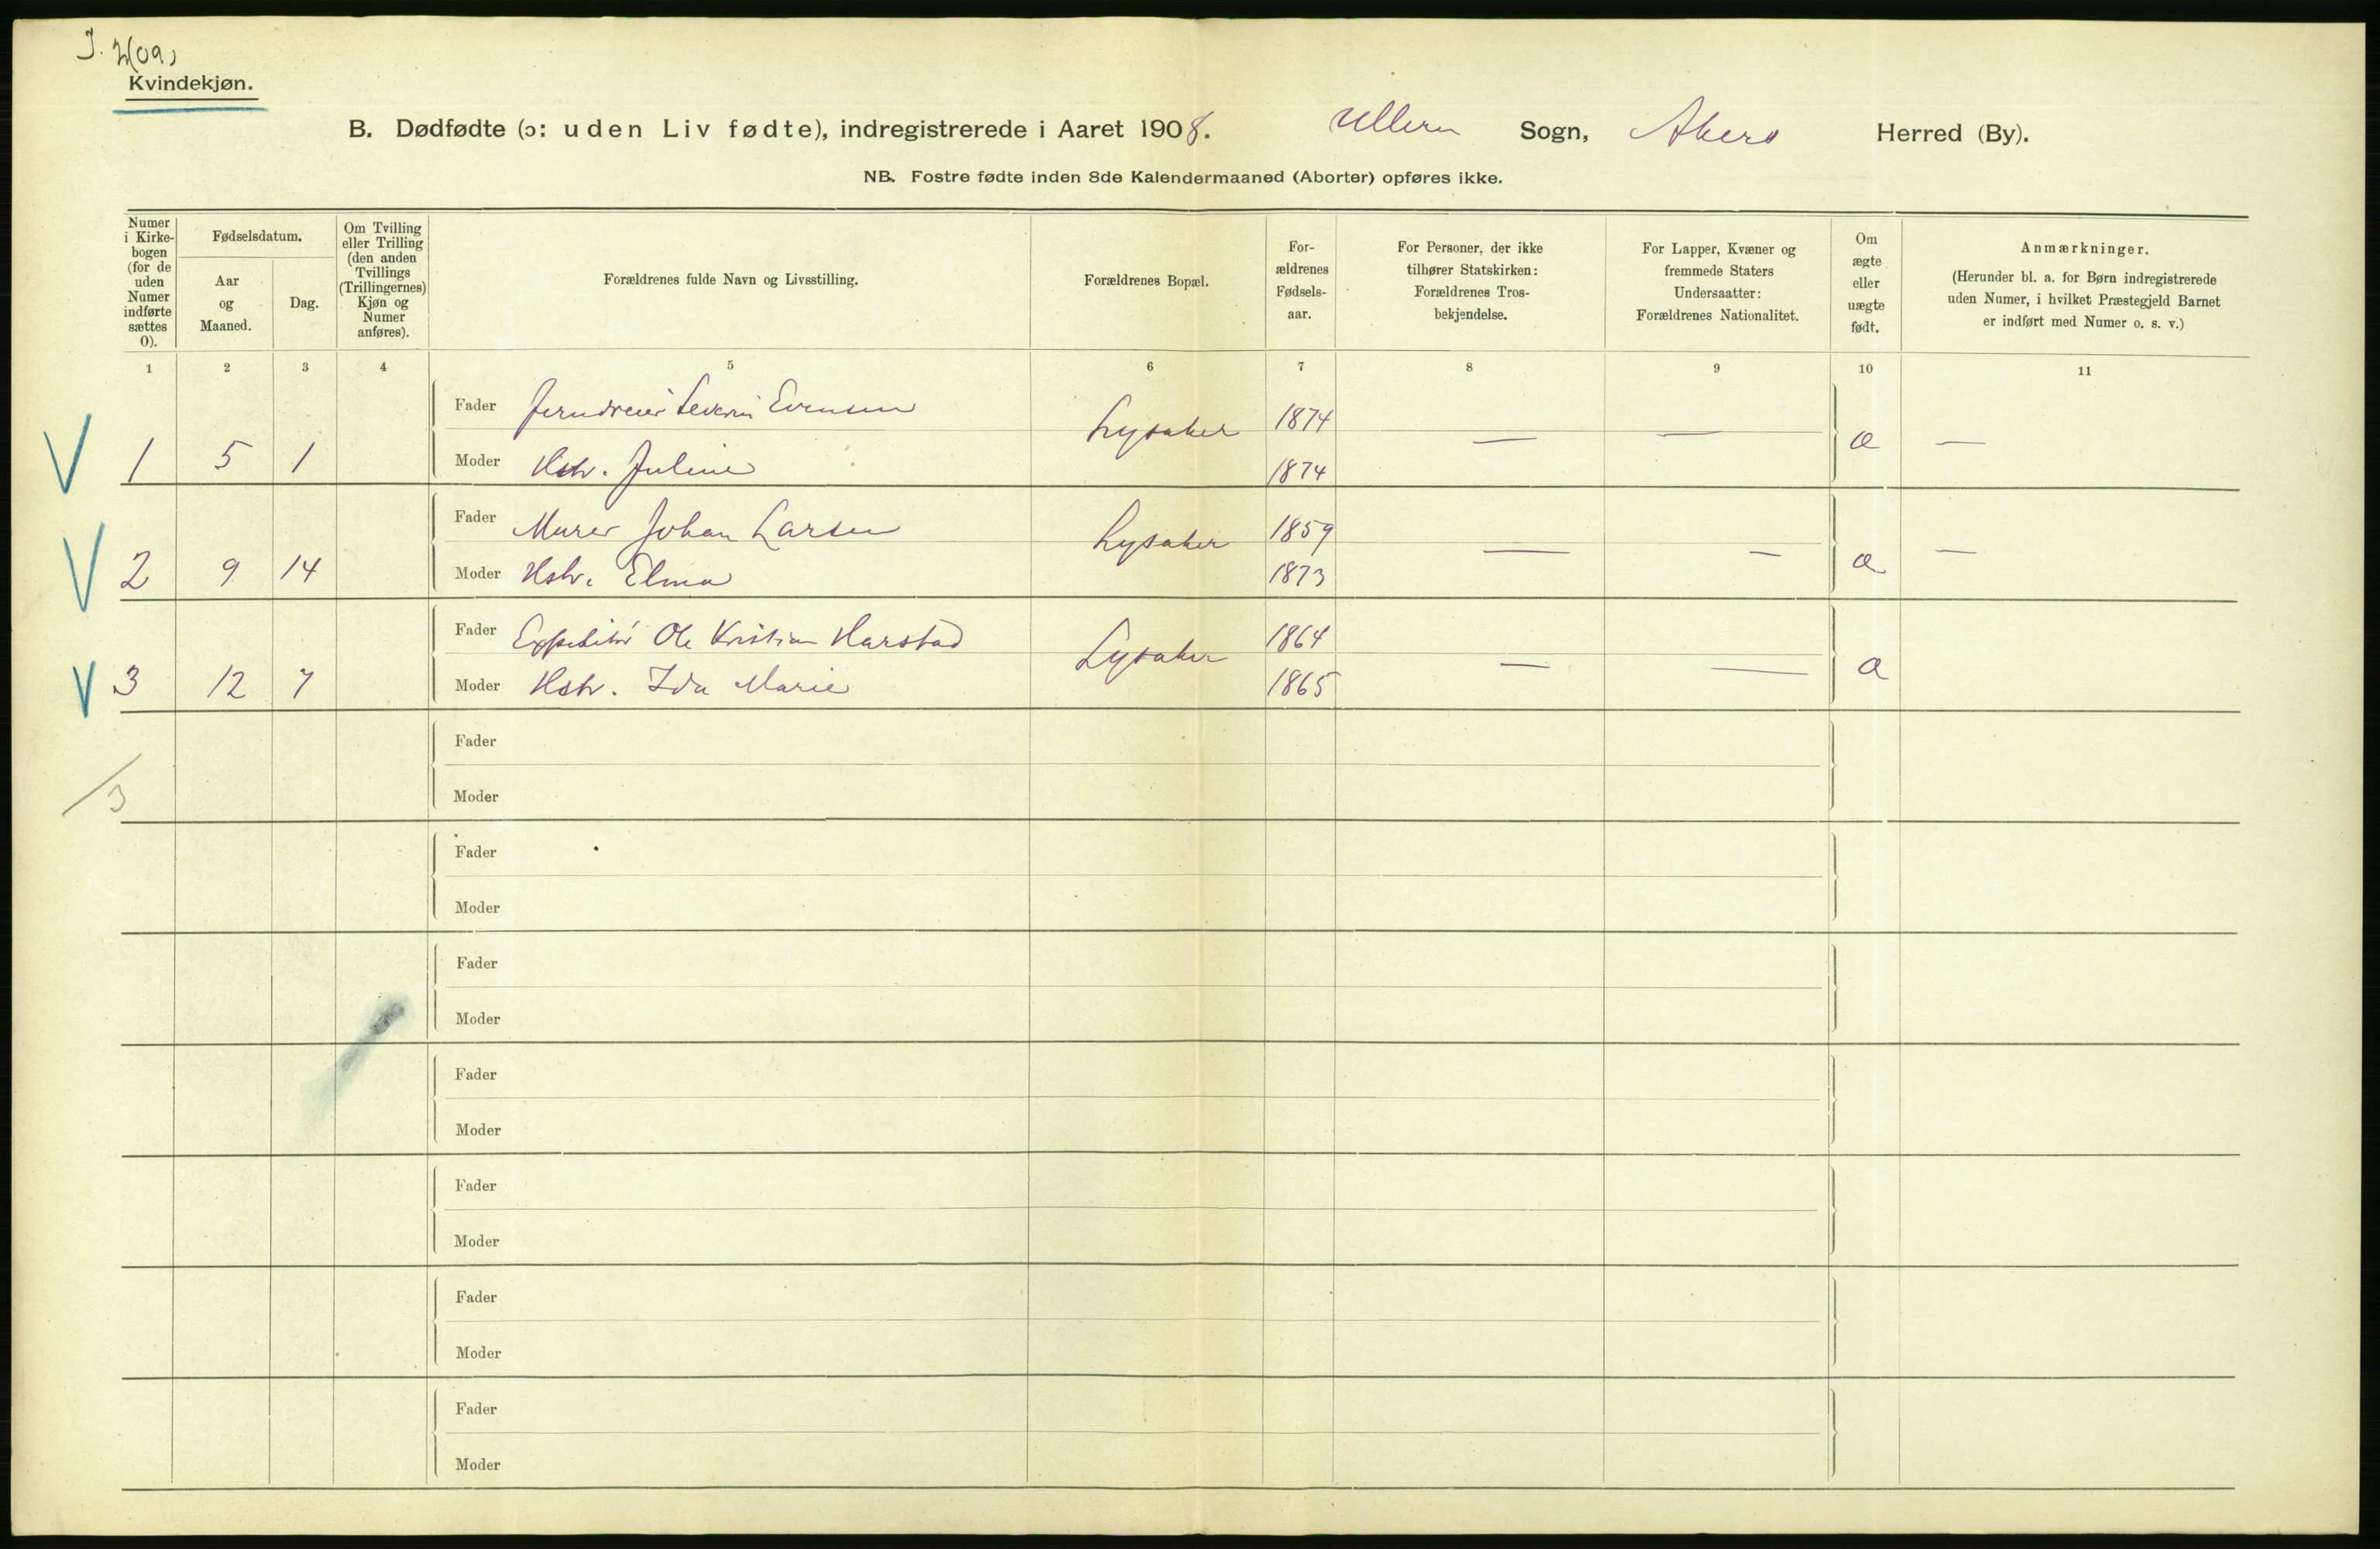 J. 2(09)
Kvindekjøn.
B. Dødfødte (ɔ: uden Liv fødte), indregistrerede i Aaret 1908. Ullern Sogn, Akers Herred (By).
NB. Fostre fødte inden 8de Kalendermaaned (Aborter) opføres ikke.
Numer i Kirkebogen (for de uden Numer indførte sættes 0).
Fødselsdatum.
Aar og Maaned.
Dag.
Om Tvilling eller Trilling (den anden Tvillings (Trillingernes) Kjøn og Numer anføres).
Forældrenes fulde Navn og Livsstilling.
Forældrenes Bopæl.
Forældrenes Fødselsaar.
For Personer, der ikke tilhører Statskirken: Forældrenes Trosbekjendelse.
For Lapper, Kvæner og fremmede Staters Undersaatter: Forældrenes Nationalitet.
Om ægte eller uægte født.
Anmærkninger.
(Herunder bl. a. for Børn indregistrerede uden Numer, i hvilket Præstegjeld Barnet er indført med Numer o. s. v.)
1 2 3 4 5 6 7 8 9 10 11
Fader Jerndreier Severin Evensen Lysaker 1874
V 1 5 1 Moder Hstr. Juline 1874 — — æ —
Fader Murer Johan Larsen Lysaker 1859
V 2 9 14 Moder Hstr. Elma 1873 — — æ —
Fader Expeditør Ole Kristian Harstad Lysaker 1864
V 3 12 7 Moder Hstr. Ida Marie 1865 — — æ
Fader
/3 Moder
Fader
Moder
Fader
Moder
Fader
Moder
Fader
Moder
Fader
Moder
Fader
Moder